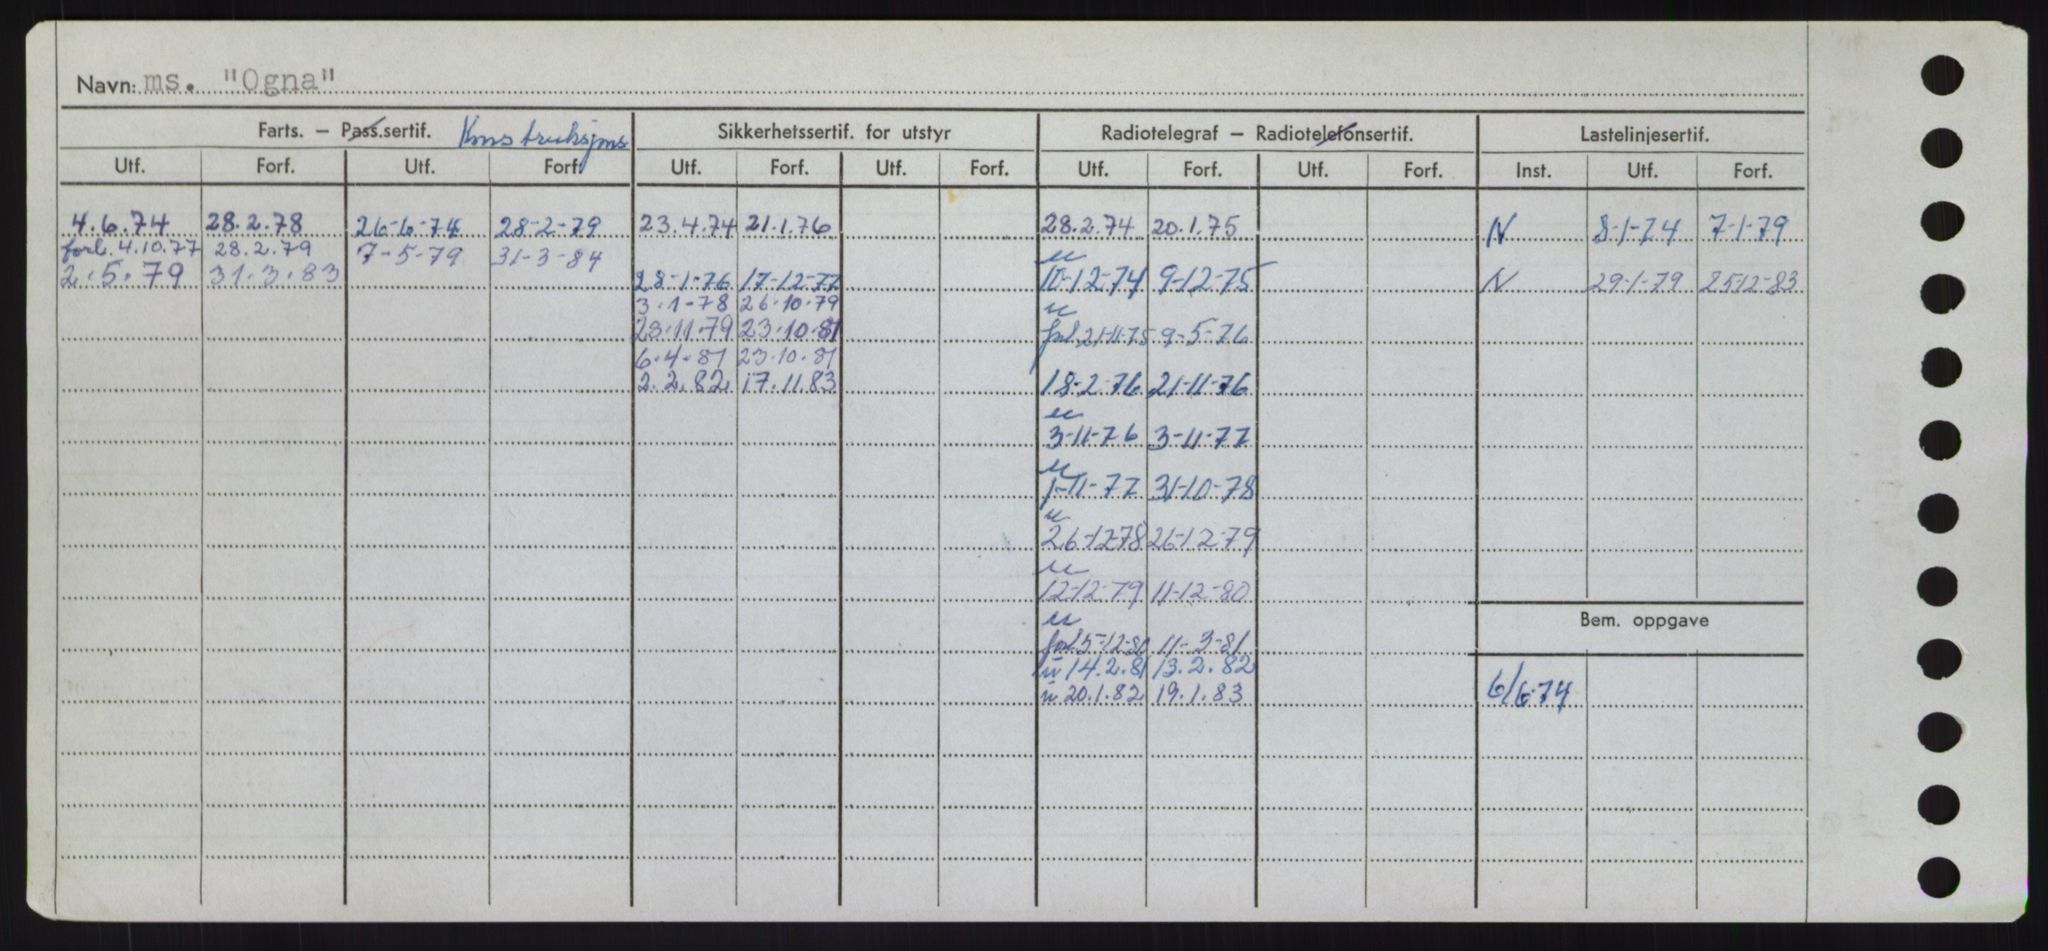 Navn: ms. "Ogna"
Farts. – Pass.sertif. Konstruksjons Sikkerhetssertif. for utstyr Radiotelegraf – Radiotelefonsertif. Lastelinjesertif.
Utf. Forf. Utf. Forf. Utf. Forf. Utf. Forf. Utf. Forf. Utf. Forf. Inst. Utf. Forf.
4.6.74 28.2.78 26-6-74 28-2-79 23.4.74 21.1.76 28.2.74 20.1.75 N 8-1-74 7-1-79
forl. 4.10.77 28.2.79 7-5-79 31-3-84
2.5.79 31.3.83 28-1-76 17-12-77 10-12-74 9-12-75 N 29-1-79 25-12-83
3.1-78 26.10.79
23.11.79 23.10.81 forl. 21-11-75 9-5-76
6.4.81 23.10.81
2.2.82. 17.11.83 18-2-76 21-11-76
3-11-76 3-11-77
1-11-77 31-10-78
26-12-78 26-12-79
12-12-79 11-12-80
Bem. oppgave
forl 5-12-80 11-3-81
14.2.81 13.2.82
20.1.82 19.1.83 6/6-74